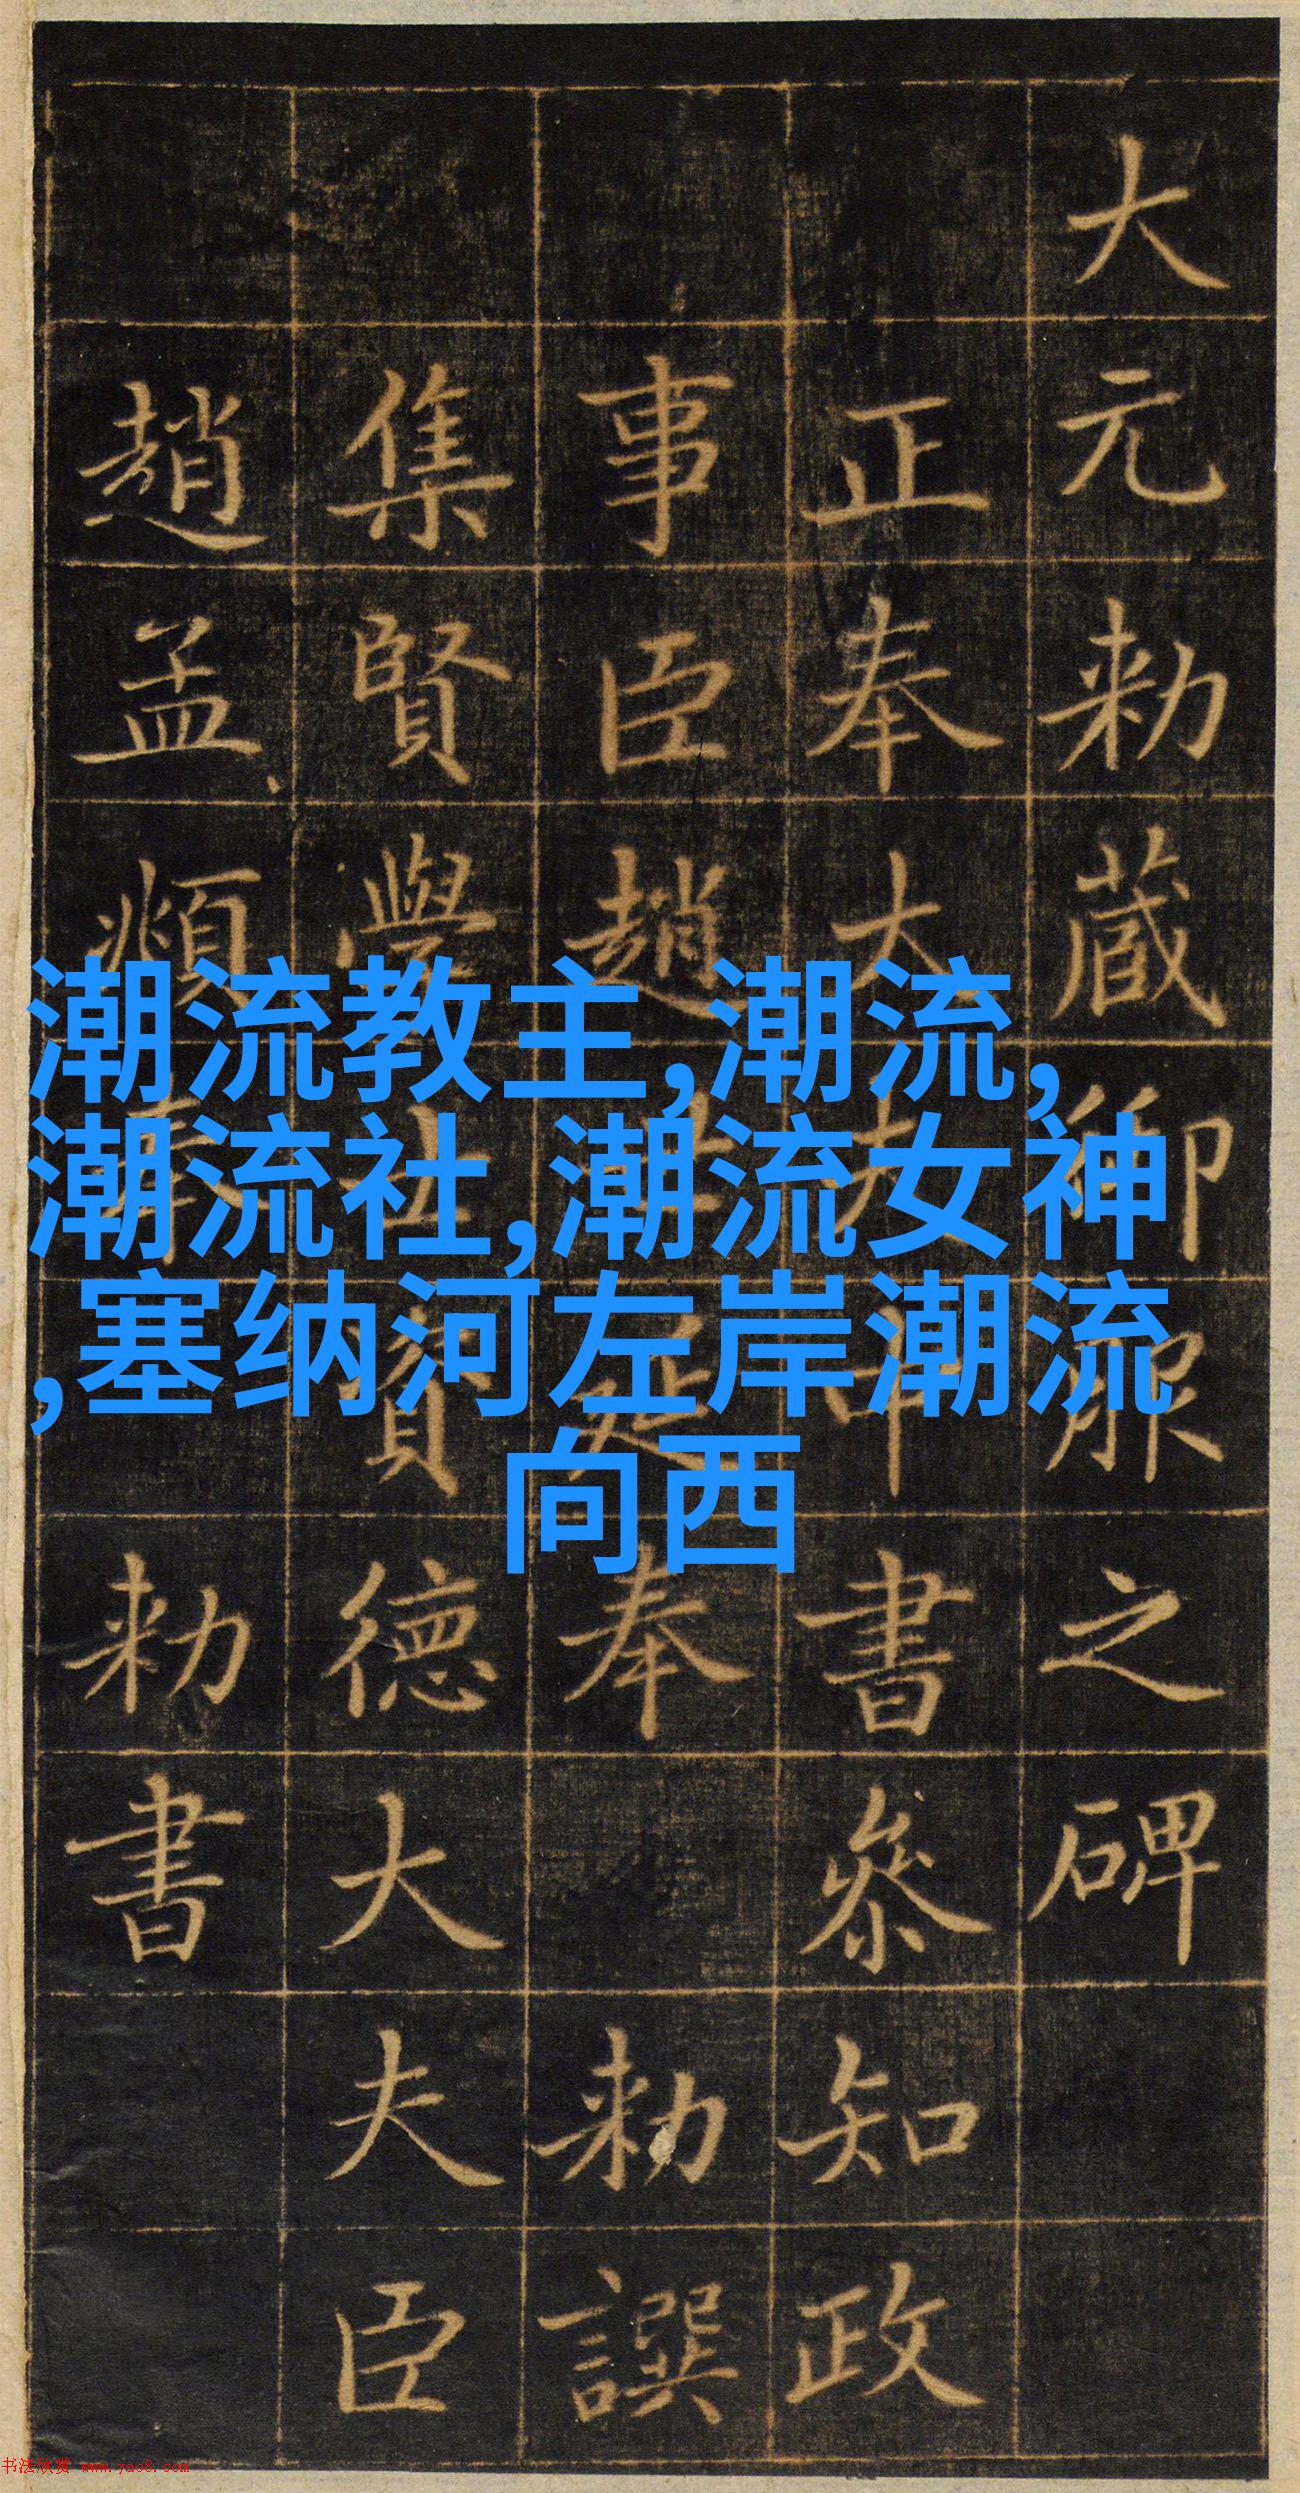 大元勅藏御服之碑
正奉大夫中書叅知政
事臣趙世延奉 勅譔
集賢學士資德大夫臣
趙孟頫奉 勅書
潮流教主,潮流,
潮流社,潮流女神
,塞纳河左岸潮流
向西
书法欣赏 www.yac8.com